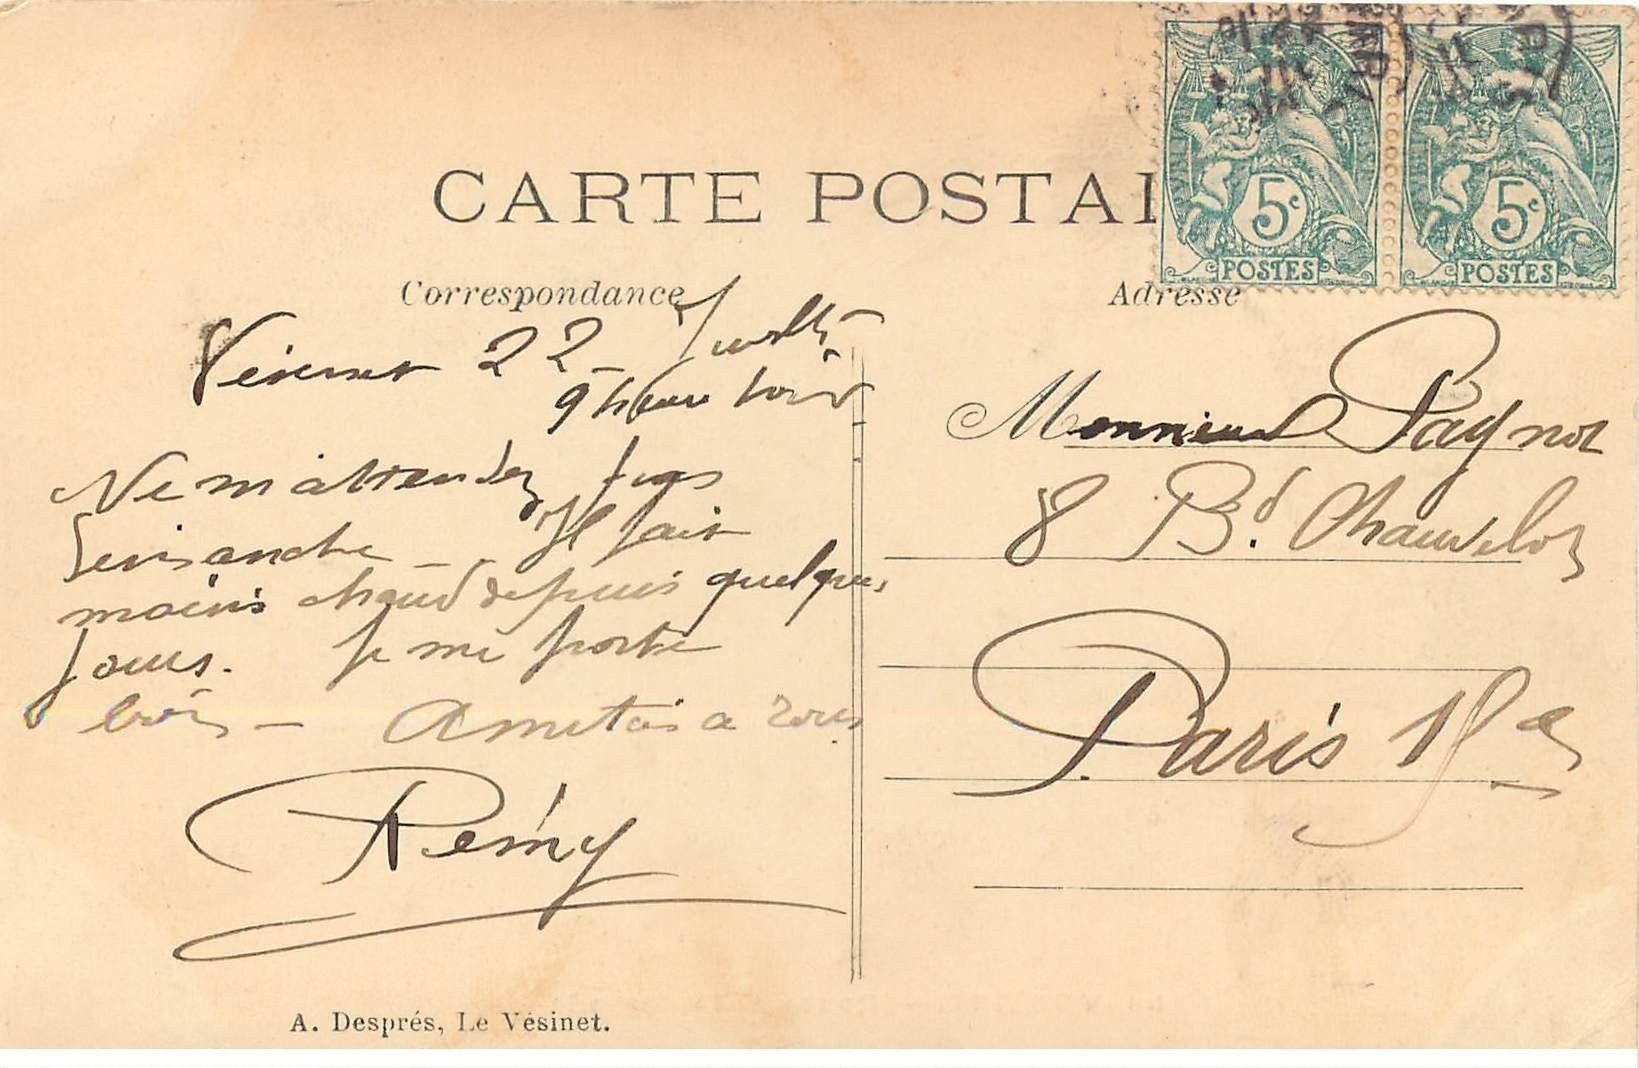 CARTE POSTAL
Correspondance
Vésinet 22 Juillet
9 heure soir
Ne m'attendez pas
Dimanche Il fait
moins chaud depuis quelques
jours. Je me porte
bien - Amitiés a tous
Rémy
A. Després, Le Vésinet.
5c 5c
POSTES POSTES
Adresse
Monsieur Pagnot
8 Bd. Chauvelot
Paris 15e